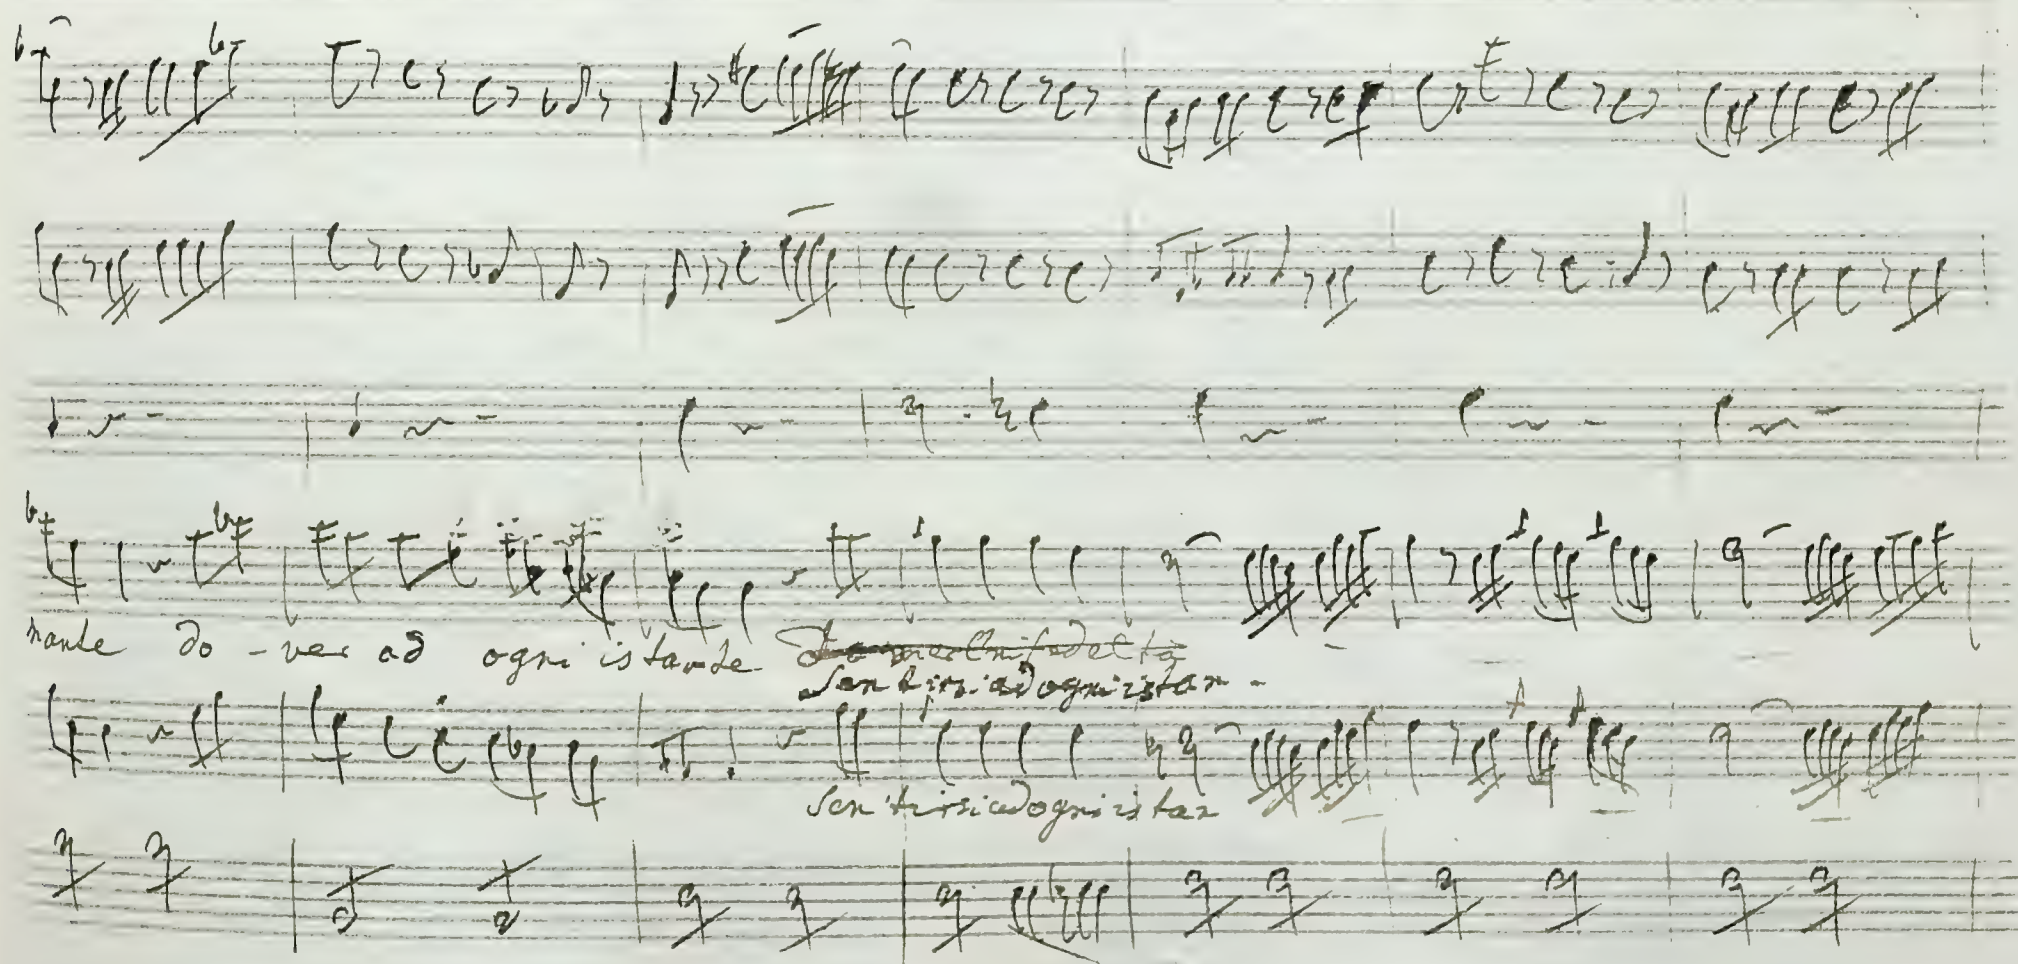 nante do - ver ad ogni istante
sentirsi ad ogni istan -
sentirsi ad ogni istan